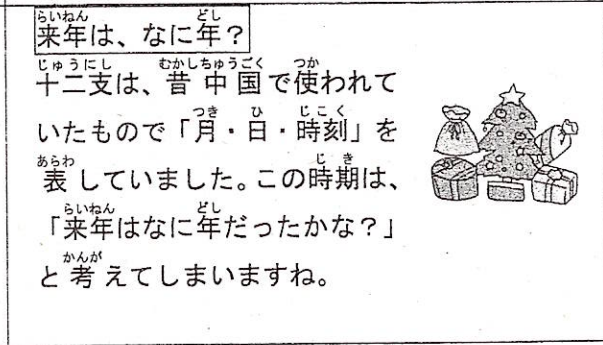 来年は、なに年?
十二支は、昔中国で使われて
いたもので「月・日・時刻」を
表していました。この時期は、
「来年はなに年だったかな?」
と考えてしまいますね。